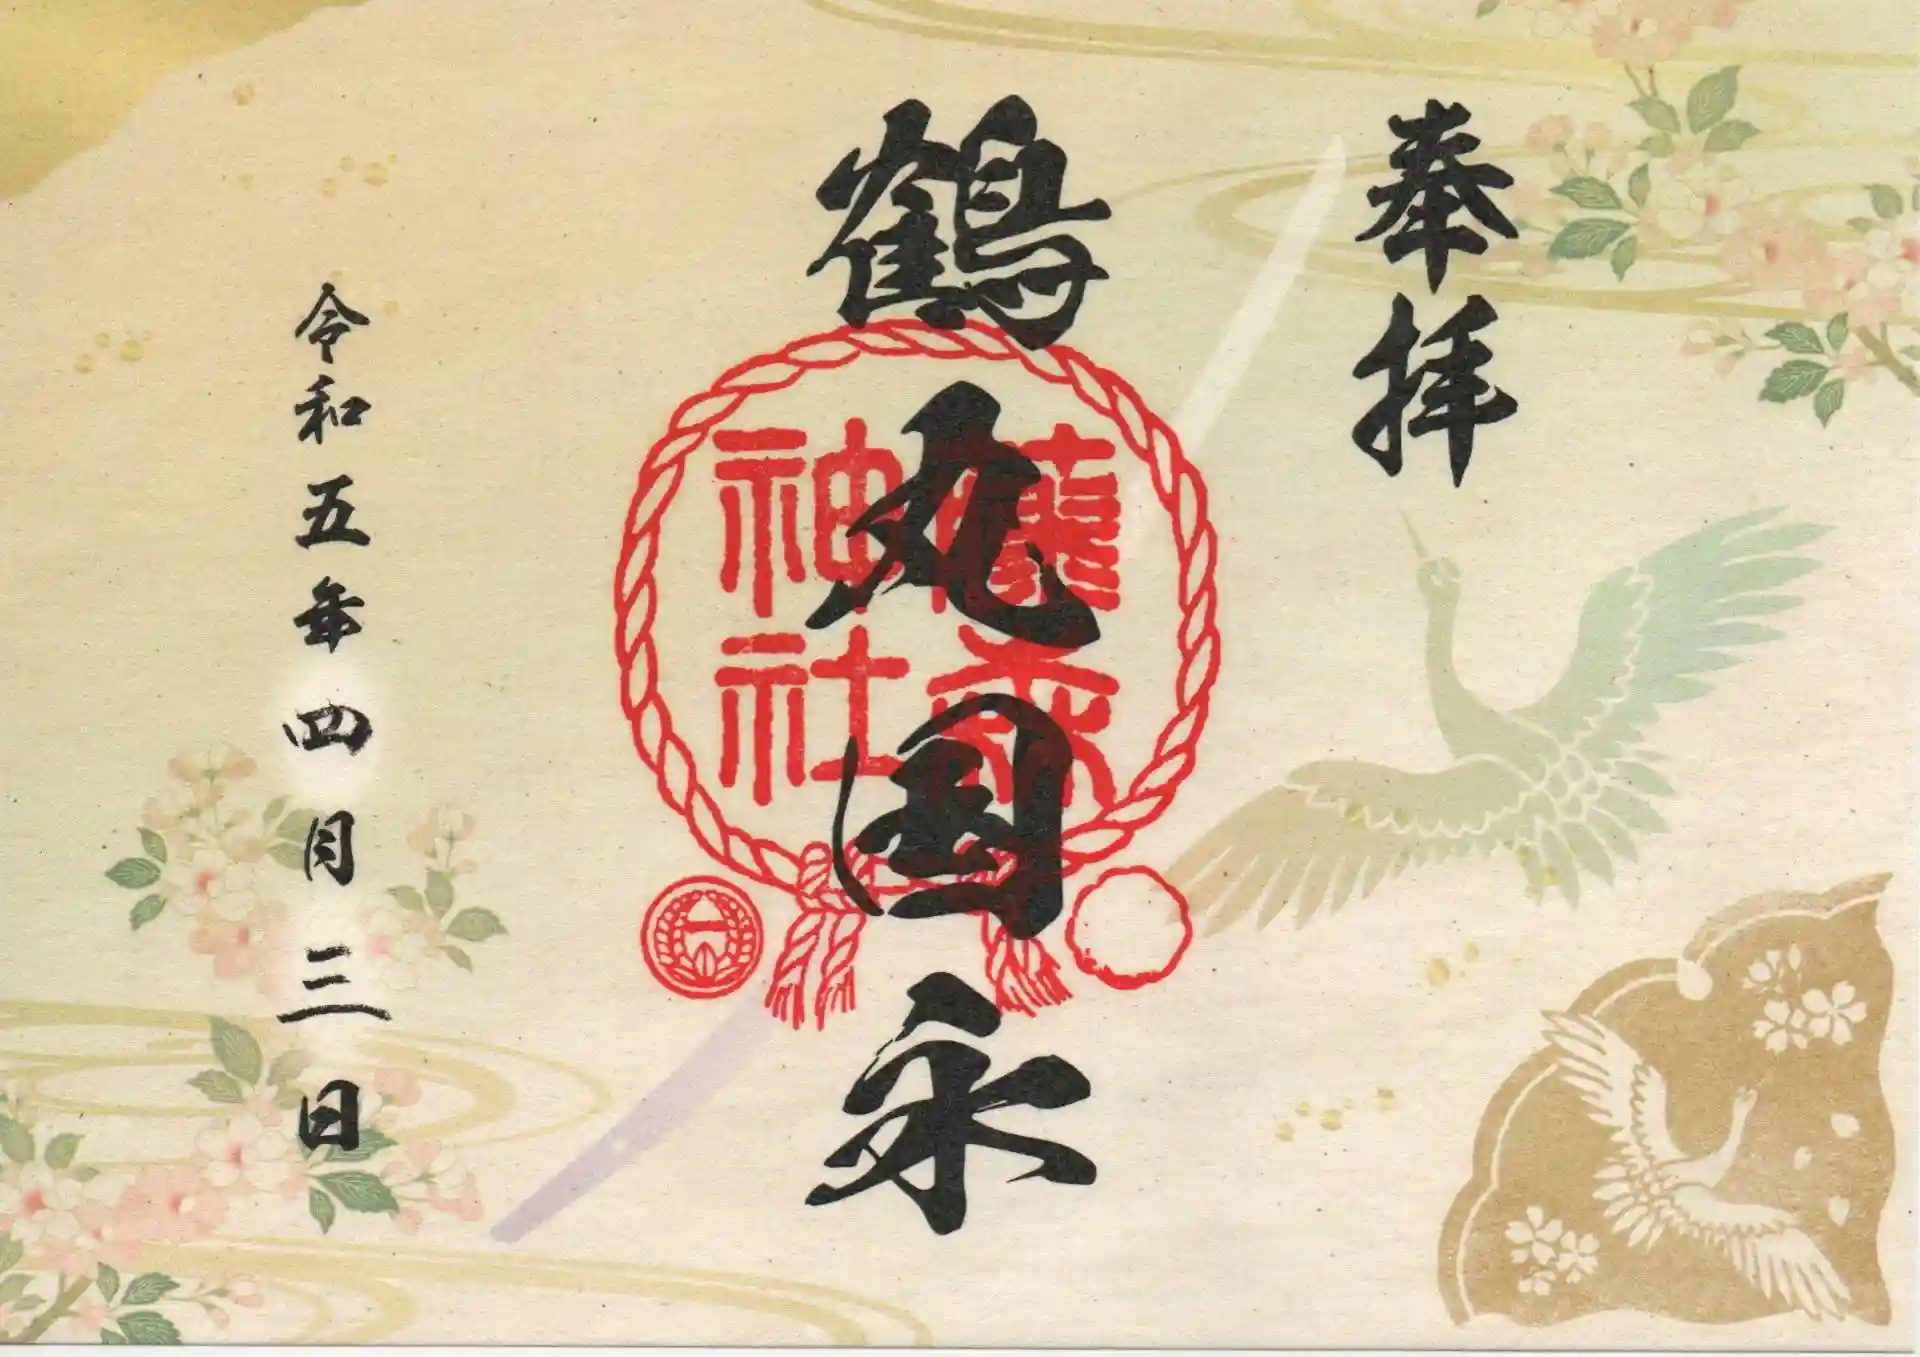 奉拝
鶴丸国永
藤森
神社
令和五年四月三日